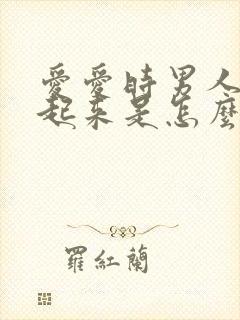 愛愛時男人
起來是怎麼
羅紅蘭